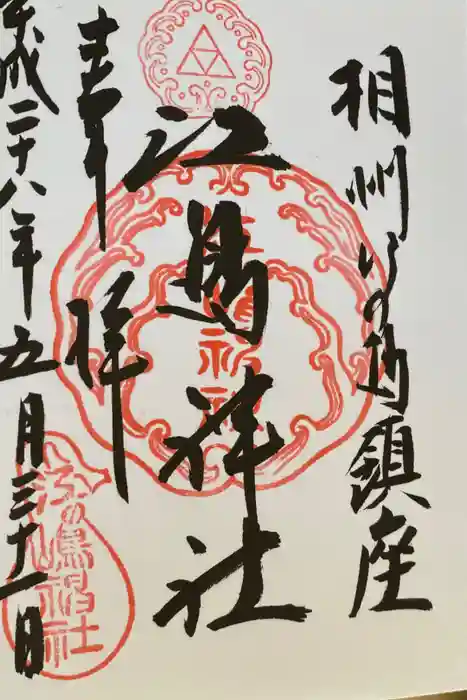 相州江の島鎮座
江島神社
奉拝
平成二十八年五月三十一日
江の島神社